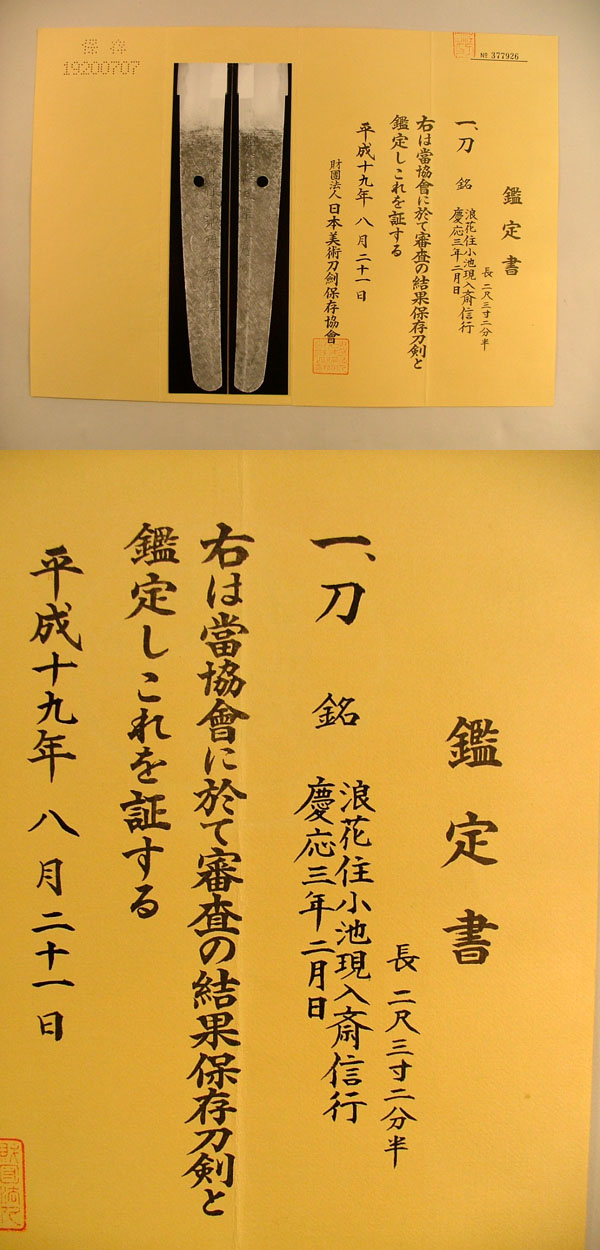 保存
19200707
№ 377926
鑑定書
長 二尺三寸二分半
一、刀 銘 浪花住小池現入斎信行
慶応三年二月日
右は當協會に於て審査の結果保存刀剣と
鑑定しこれを証する
平成十九年 八月二十一日
財團法人 日本美術刀劍保存協會
鑑定書
長 二尺三寸二分半
一、刀 銘 浪花住小池現入斎信行
慶応三年二月日
右は當協會に於て審査の結果保存刀剣と
鑑定しこれを証する
平成十九年 八月二十一日